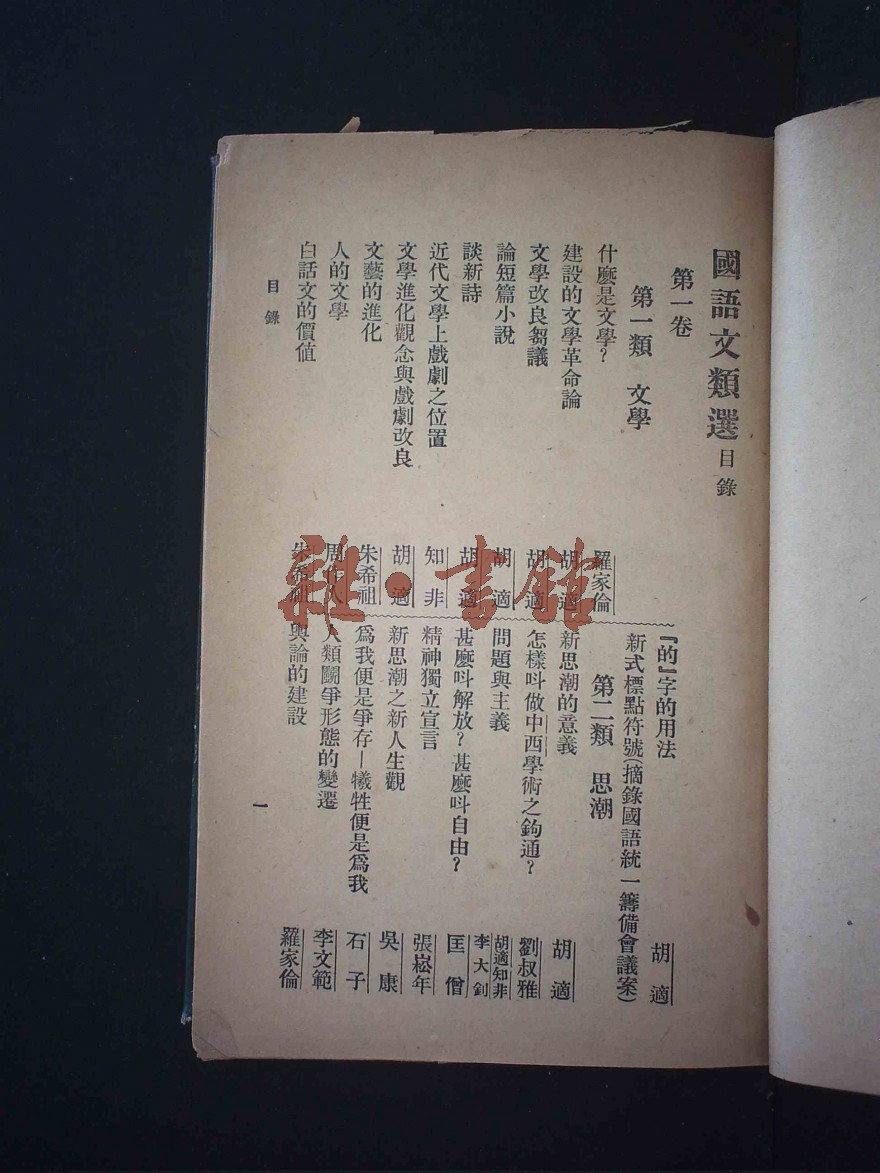 國語文類選目錄
第一卷
第一類 文學
什麼是文學? 羅家倫
建設的文學革命論 胡適
文學改良芻議 胡適
論短篇小說 胡適
談新詩 胡適
近代文學上戲劇之位置 知非
文學進化觀念與戲劇改良 胡適
文藝的進化 朱希祖
人的文學 周作人
白話文的價值 朱希祖
『的』字的用法 胡適
新式標點符號(摘錄國語統一籌備會議案)
第二類 思潮
新思潮的意義 胡適
怎樣呌做中西學術之鉤通? 劉叔雅
問題與主義 胡適知非李大釗
甚麼呌解放?甚麼呌自由? 匡僧
精神獨立宣言 張崧年
新思潮之新人生觀 吳康
爲我便是爭存—犧牲便是爲我 石子
人類鬭爭形態的變遷 李文範
輿論的建設 羅家倫
目錄
一
雜·書館